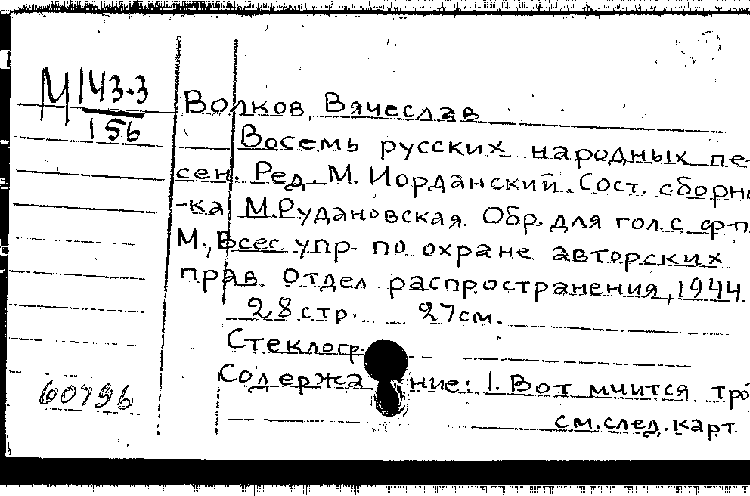 М143-3
156
Волков, Вячеслав
Восемь русских народных пе-
сен. Ред. М. Иорданский. Сост. сборни
-ка М.Рудановская. Обр. для гол. с ф-п.
М., Всес упр- по охране авторских
прав. Отдел распространения, 1944.
2,8 стр. 27см.
Стеклогр.
Содержание: 1. Вот мчится тро
60796
см.след.карт